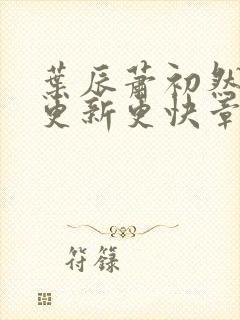 葉辰蕭初然
更新更快章
符籙